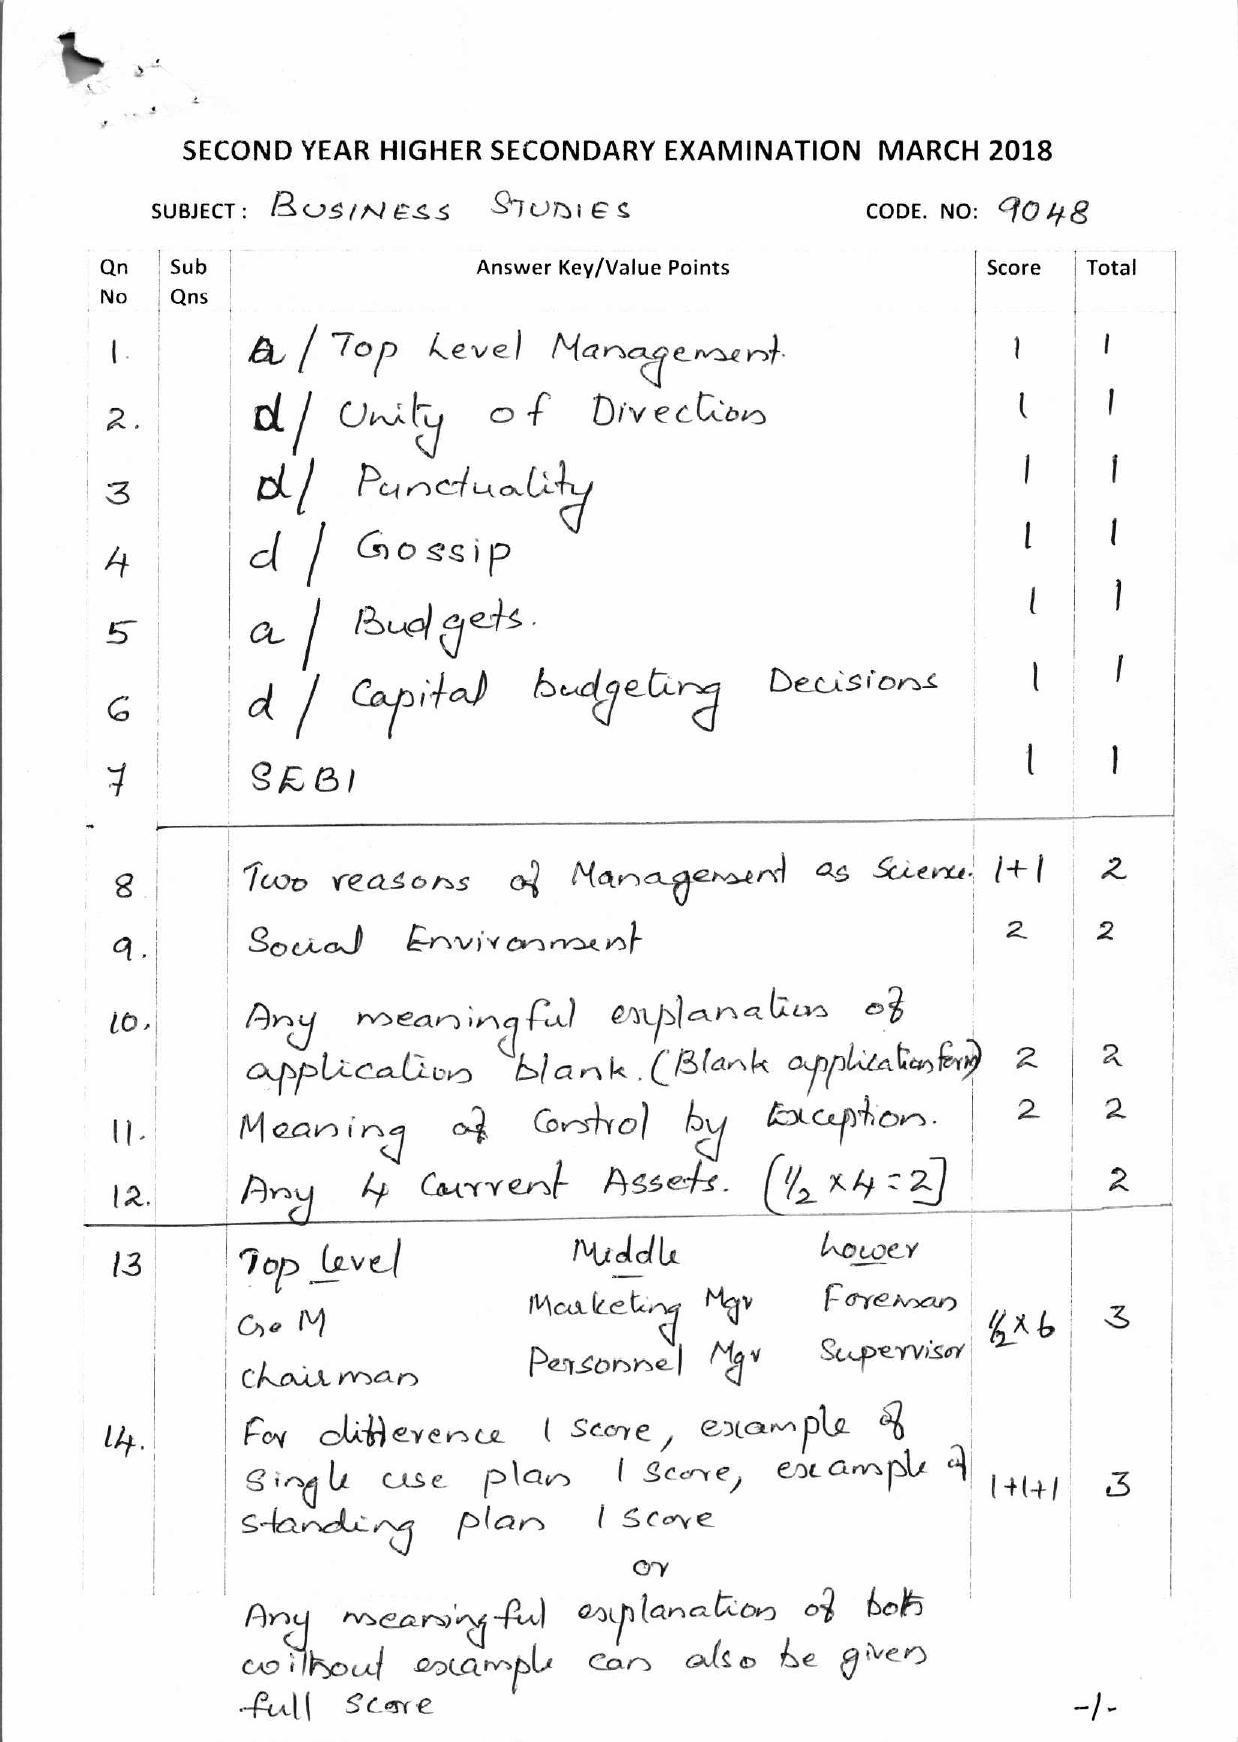 SECOND YEAR HIGHER SECONDARY EXAMINATION MARCH 2018
SUBJECT : BUSINESS STUDIES CODE. NO: 9048
Qn No Sub Qns Answer Key/Value Points Score Total
1. a / Top Level Management. 1 1
2. d / Unity of Direction 1 1
3 d / Punctuality 1 1
4 d / Gossip 1 1
5 a / Budgets. 1 1
6 d / Capital budgeting Decisions 1 1
7 SEBI 1 1
8 Two reasons of Management as Science. 1+1 2
9. Social Environment 2 2
10. Any meaningful explanation of
application blank. (Blank application form) 2 2
11. Meaning of Control by Exception. 2 2
12. Any 4 Current Assets. (½ × 4 = 2] 2
13 Top Level Middle Lower
G.M Marketing Mgr Foreman ½ × 6 3
Chairman Personnel Mgr Supervisor
14. For difference 1 score, example of
single use plan 1 score, example of 1+1+1 3
standing plan 1 score
or
Any meaningful explanation of both
without example can also be given
full score -/-